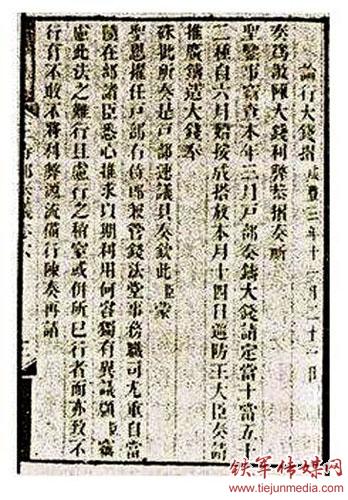 論行大錢摺 咸豐三年十一月二十一日
奏爲敬陳大錢利弊恭摺奏祈
聖鑒事竊查本年三月戶部奏鑄大錢請定當十當五十
二種自六月始按成搭放本月十四日巡防王大臣奏請
推廣鑄造大錢奉
硃批所奏是戶部速議具奏欽此臣蒙
聖恩擢任戶部右侍郎兼管錢法堂事務職司尤重自當
隨在部諸臣悉心推求以期利用何容獨有異議顧臣竊
慮此法之難行且慮行之稍窒或併所已行者而亦致不
行有不敢不將利弊源流備行陳奏再請
铁军传媒网
www.tiejunmedia.com